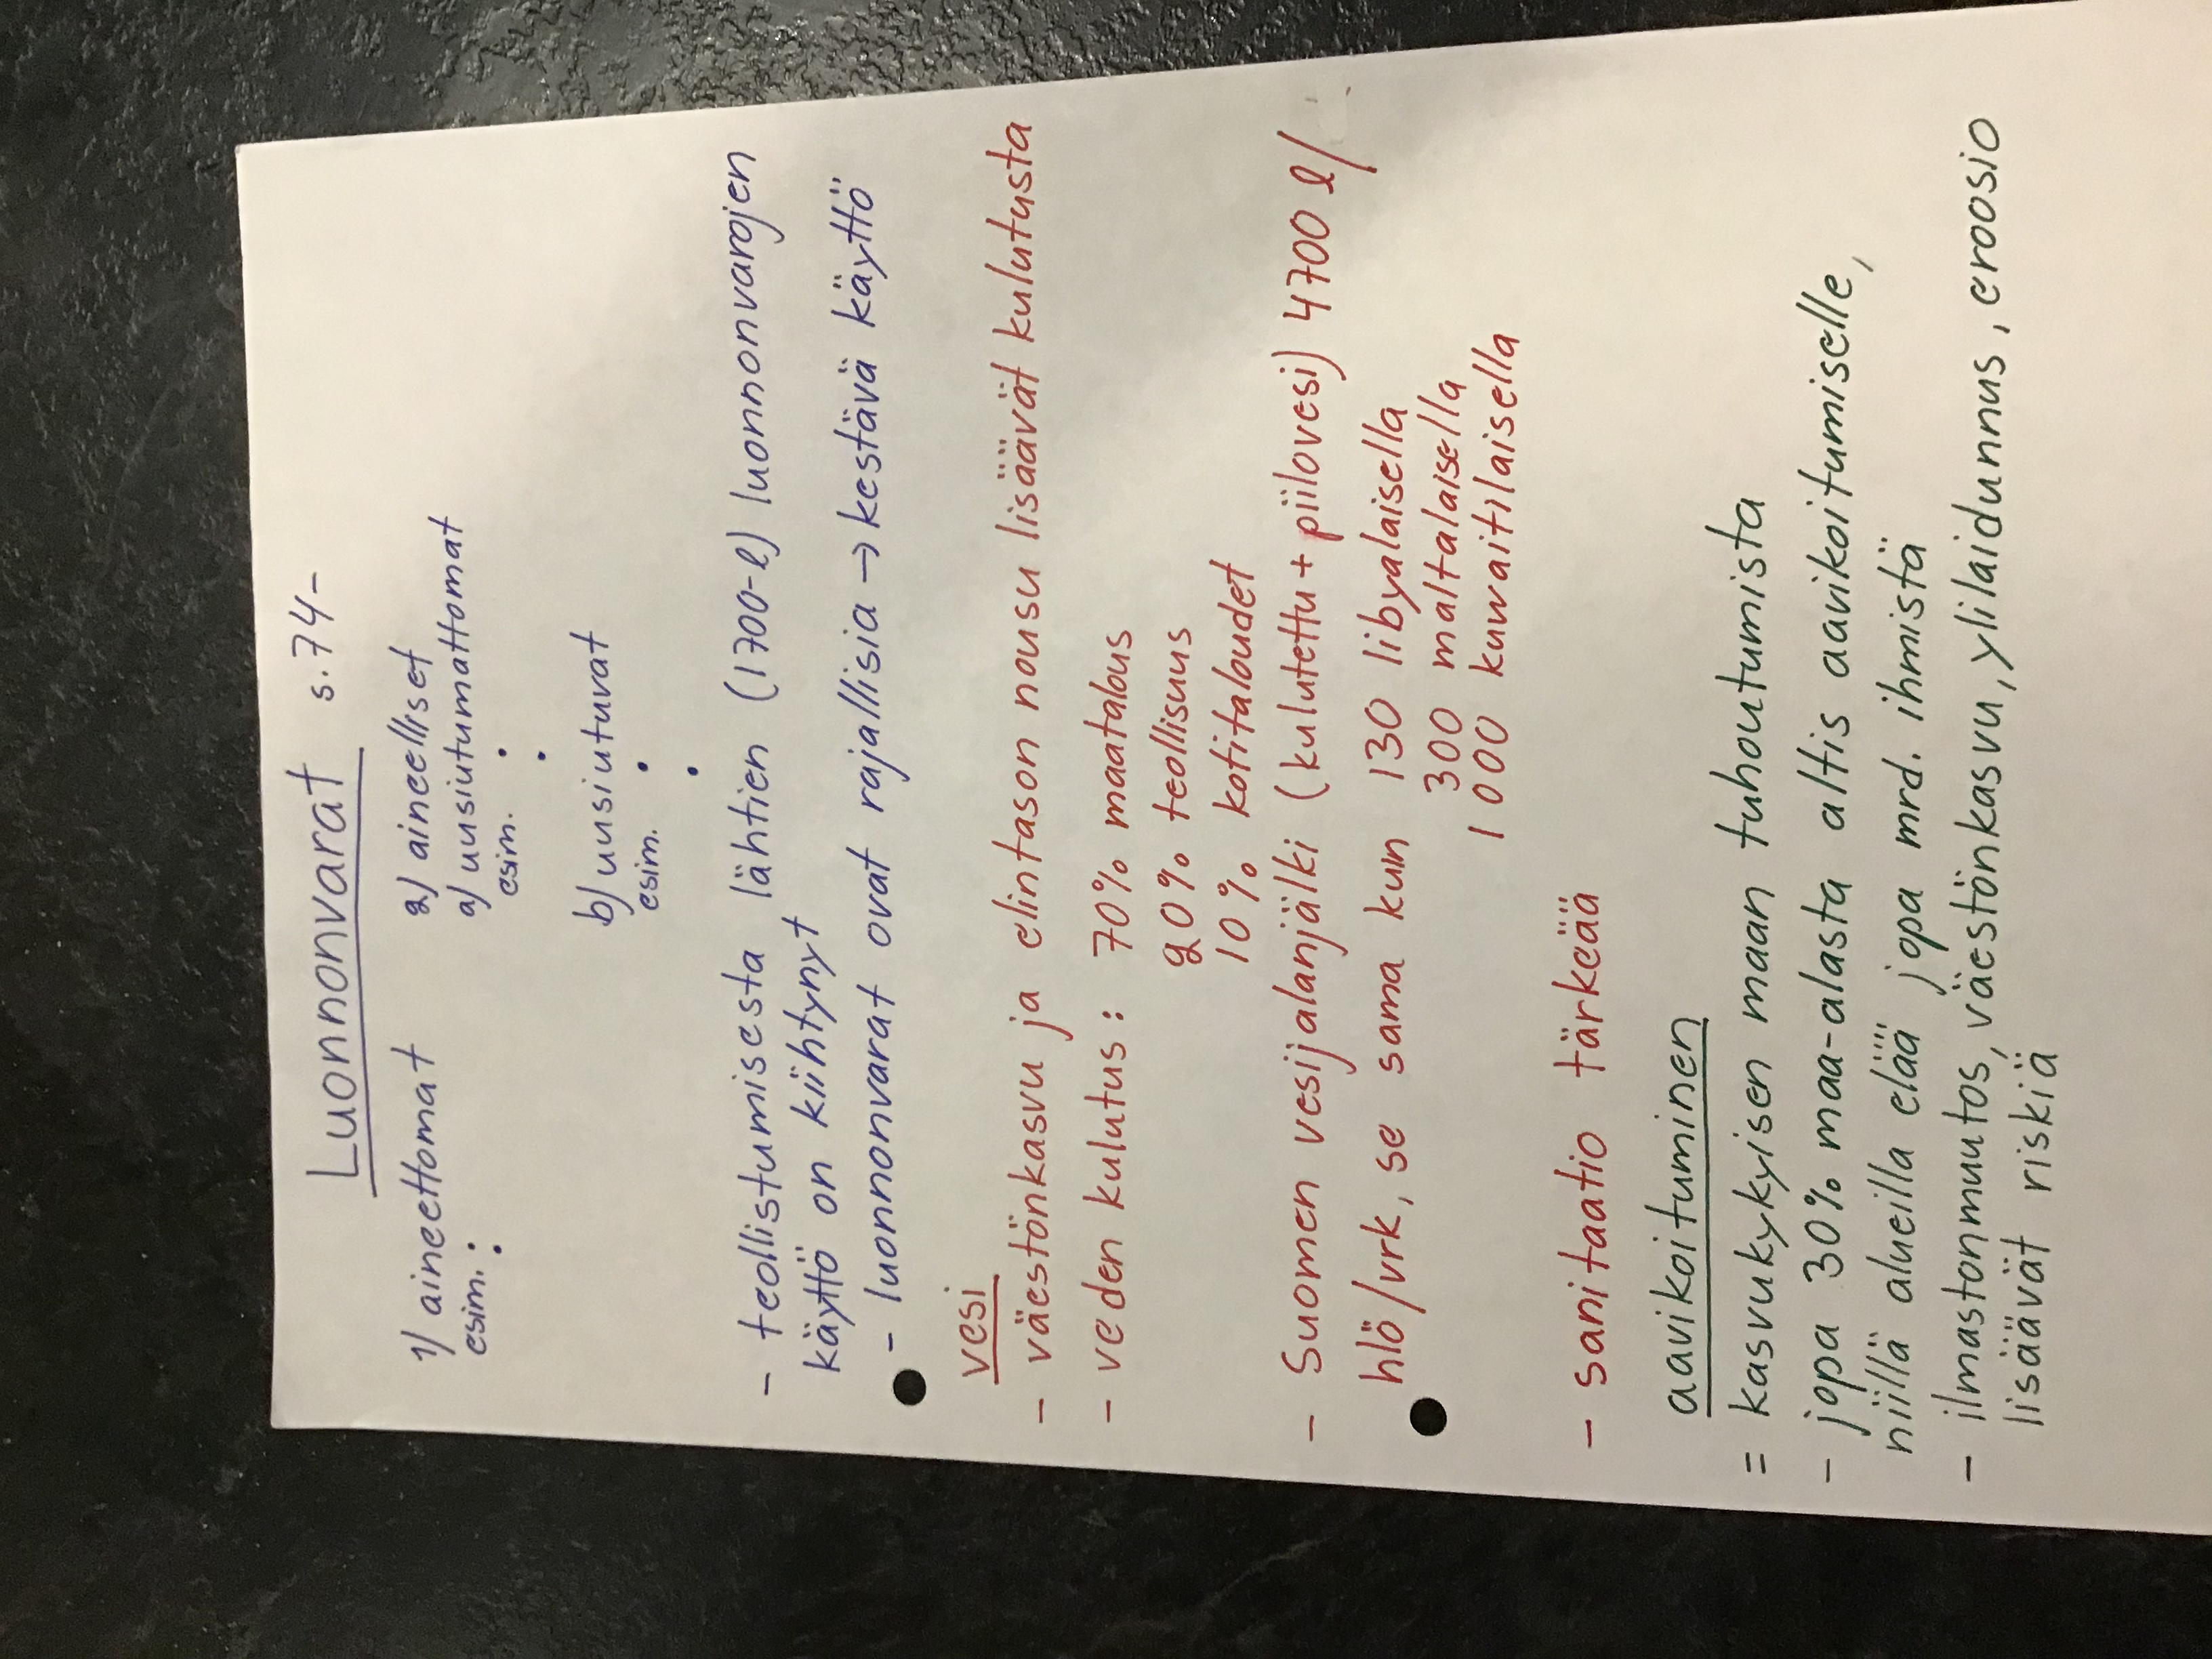 Luonnonvarat s.74-
1) aineettomat
esim. •
•
2) aineelliset
a) uusiutumattomat
esim. •
•
b) uusiutuvat
esim. •
•
- teollistumisesta lähtien (1700-l) luonnonvarojen
käyttö on kiihtynyt
- luonnonvarat ovat rajallisia → kestävä käyttö
vesi
- väestönkasvu ja elintason nousu lisäävät kulutusta
- veden kulutus: 70% maatalous
20% teollisuus
10% kotitaloudet
- Suomen vesijalanjälki (kulutettu + piilovesi) 4700 l/
hlö/vrk, se sama kun 130 libyalaisella
300 maltalaisella
1 000 kuwaitilaisella
- sanitaatio tärkeää
aavikoituminen
= kasvukykyisen maan tuhoutumista
- jopa 30% maa-alasta altis aavikoitumiselle,
niillä alueilla elää jopa mrd. ihmistä
- ilmastonmuutos, väestönkasvu, ylilaidunnus, eroosio
lisäävät riskiä